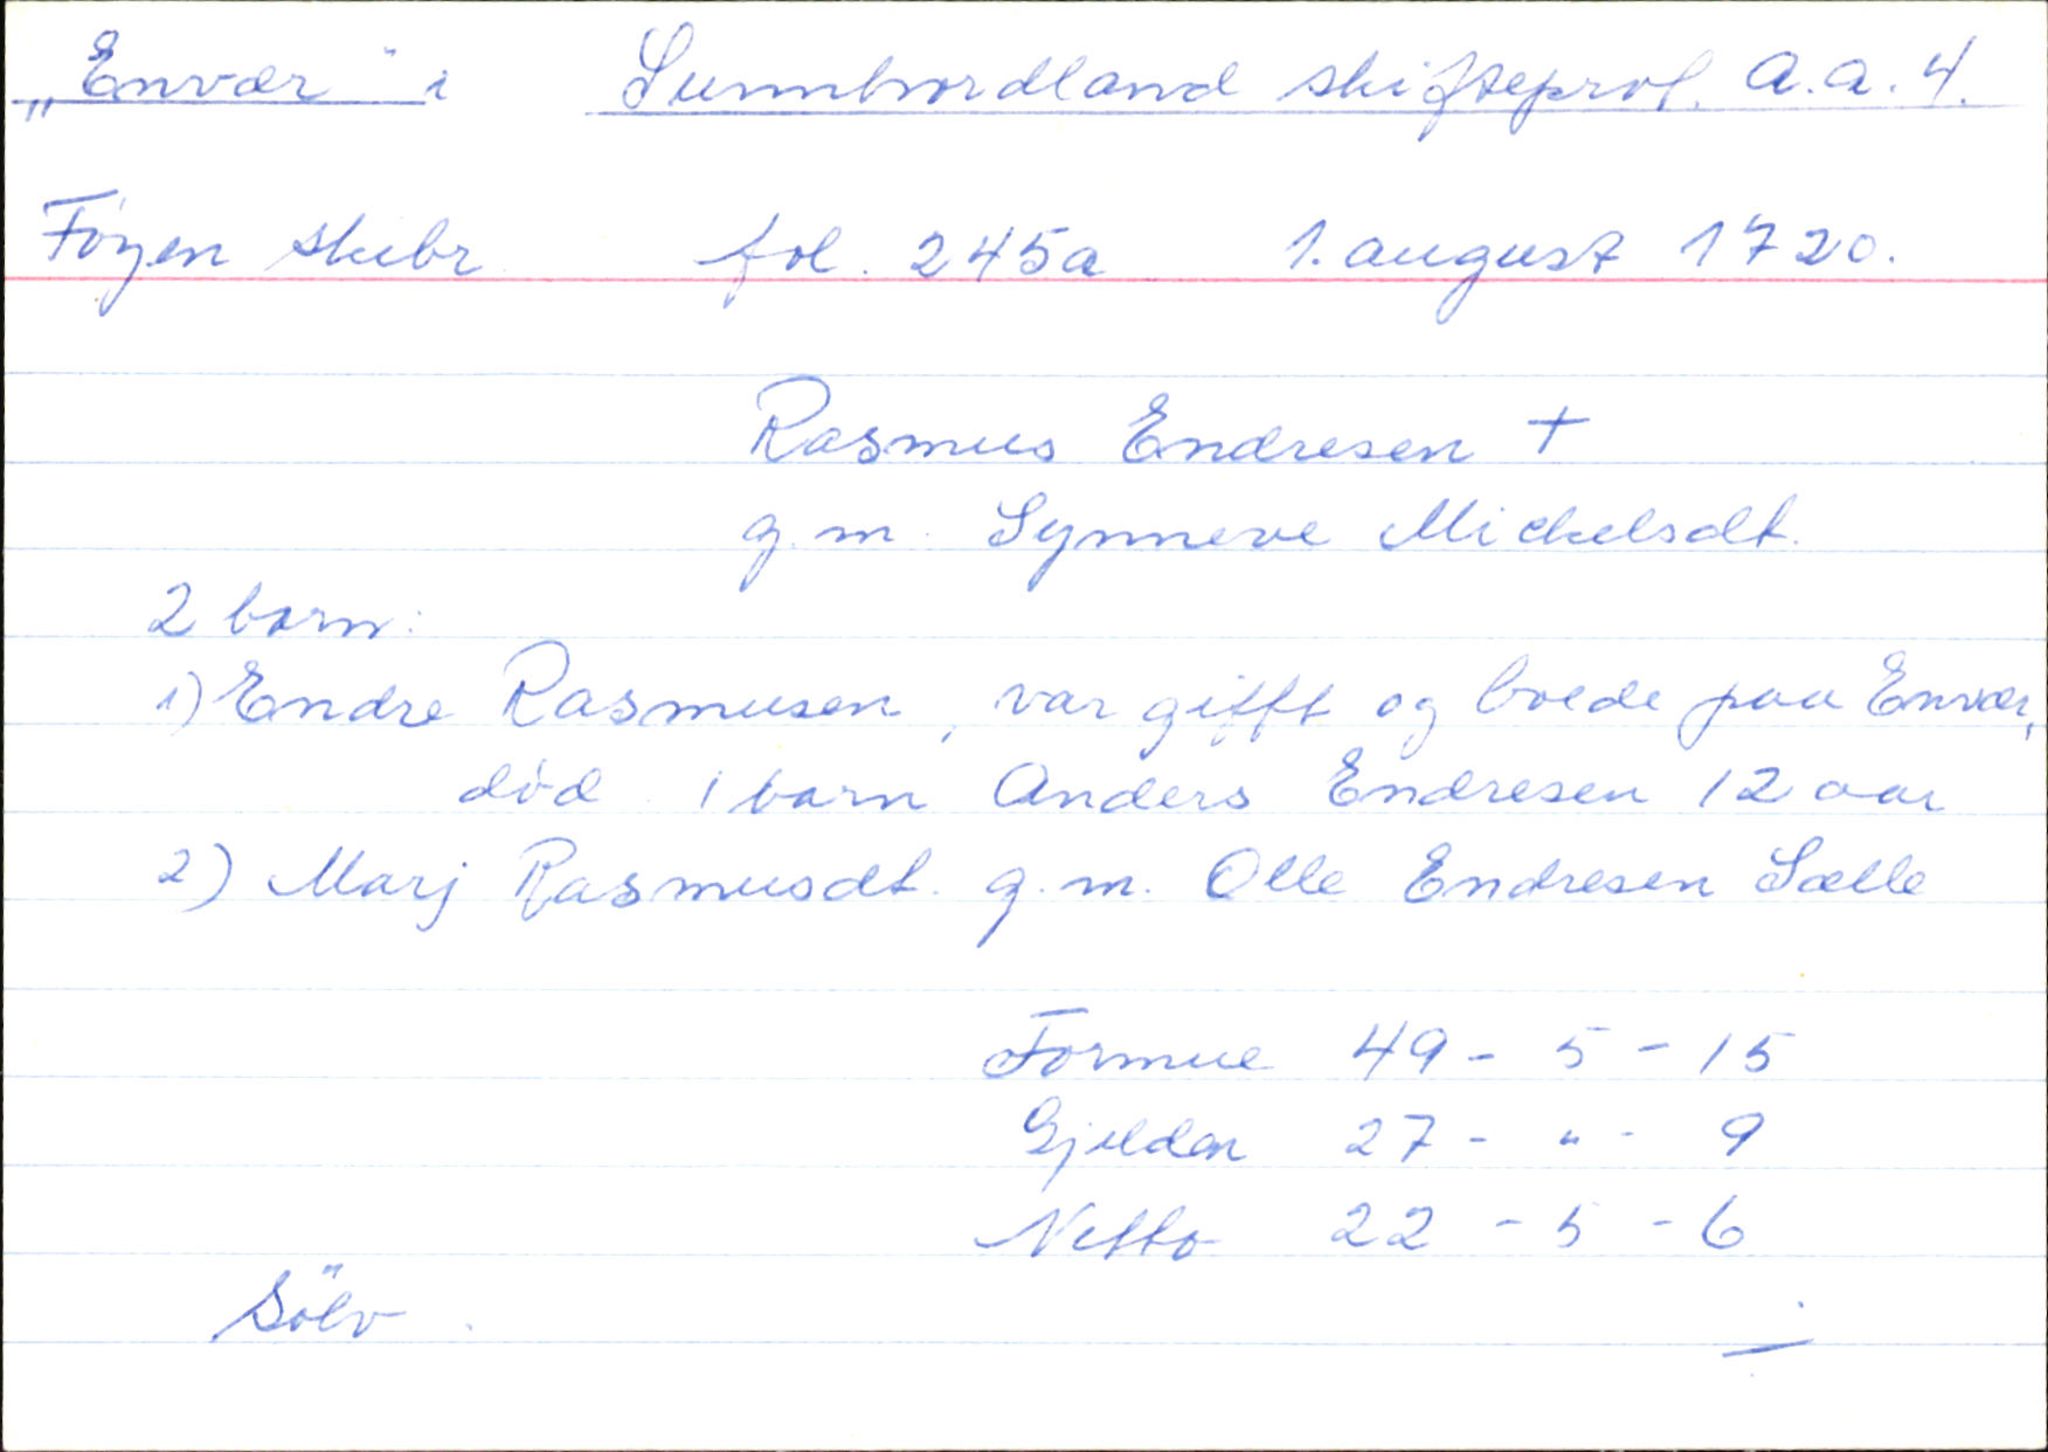 „Envær" i Sunnhordland skifteprot. A.a.4.
Föyen skibr. fol. 245a 1. august 1720.
Rasmus Endresen +
g.m. Synneve Mickelsdt.
2 barn:
1) Endre Rasmusen, var gifft og boede paa Envær,
död. 1 barn Anders Endresen 12 aar
2) Marj Rasmusdt. g.m. Olle Endresen Sælle
Formue 49 - 5 - 15
Gjelden 27 - " - 9
Netto 22 - 5 - 6
Sölv.